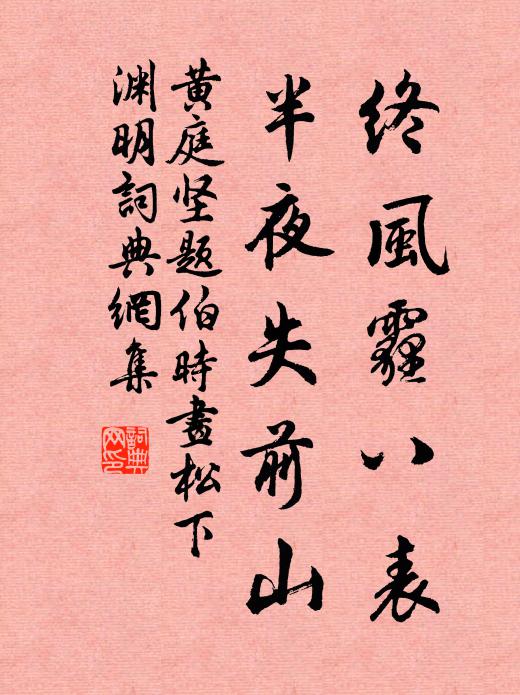 終風霾八表
半夜失前山
黃庭坚题伯時畫松下
渊明詞典網集
詞典
网印